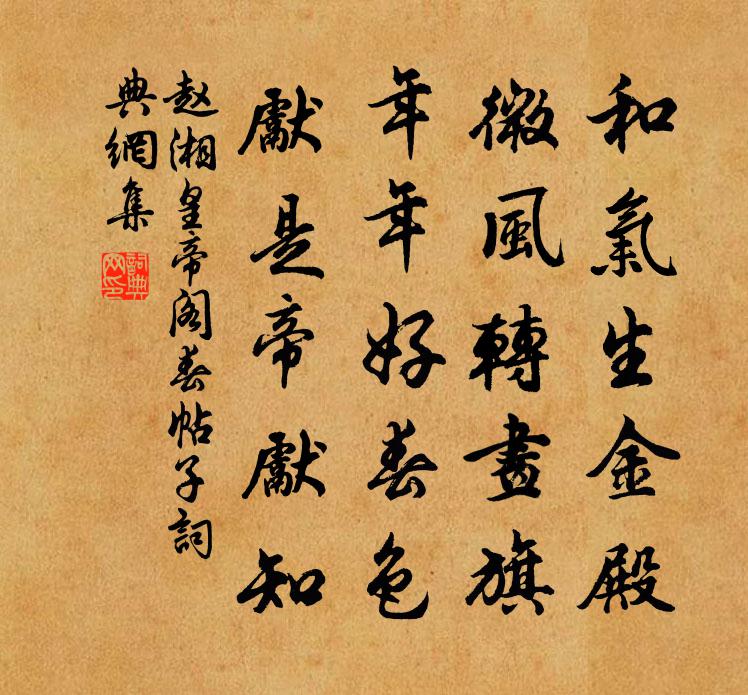 和氣生金殿
微風轉畫旗
年年好春色
獻是帝獻知
赵湘皇帝阁春帖子詞
典網集
詞典網印